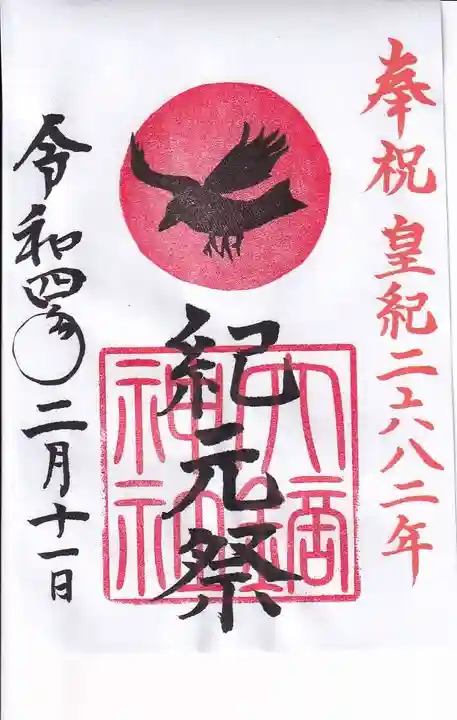 奉祝 皇紀二六八二年
紀元祭
大鏑神社
令和四年二月十一日